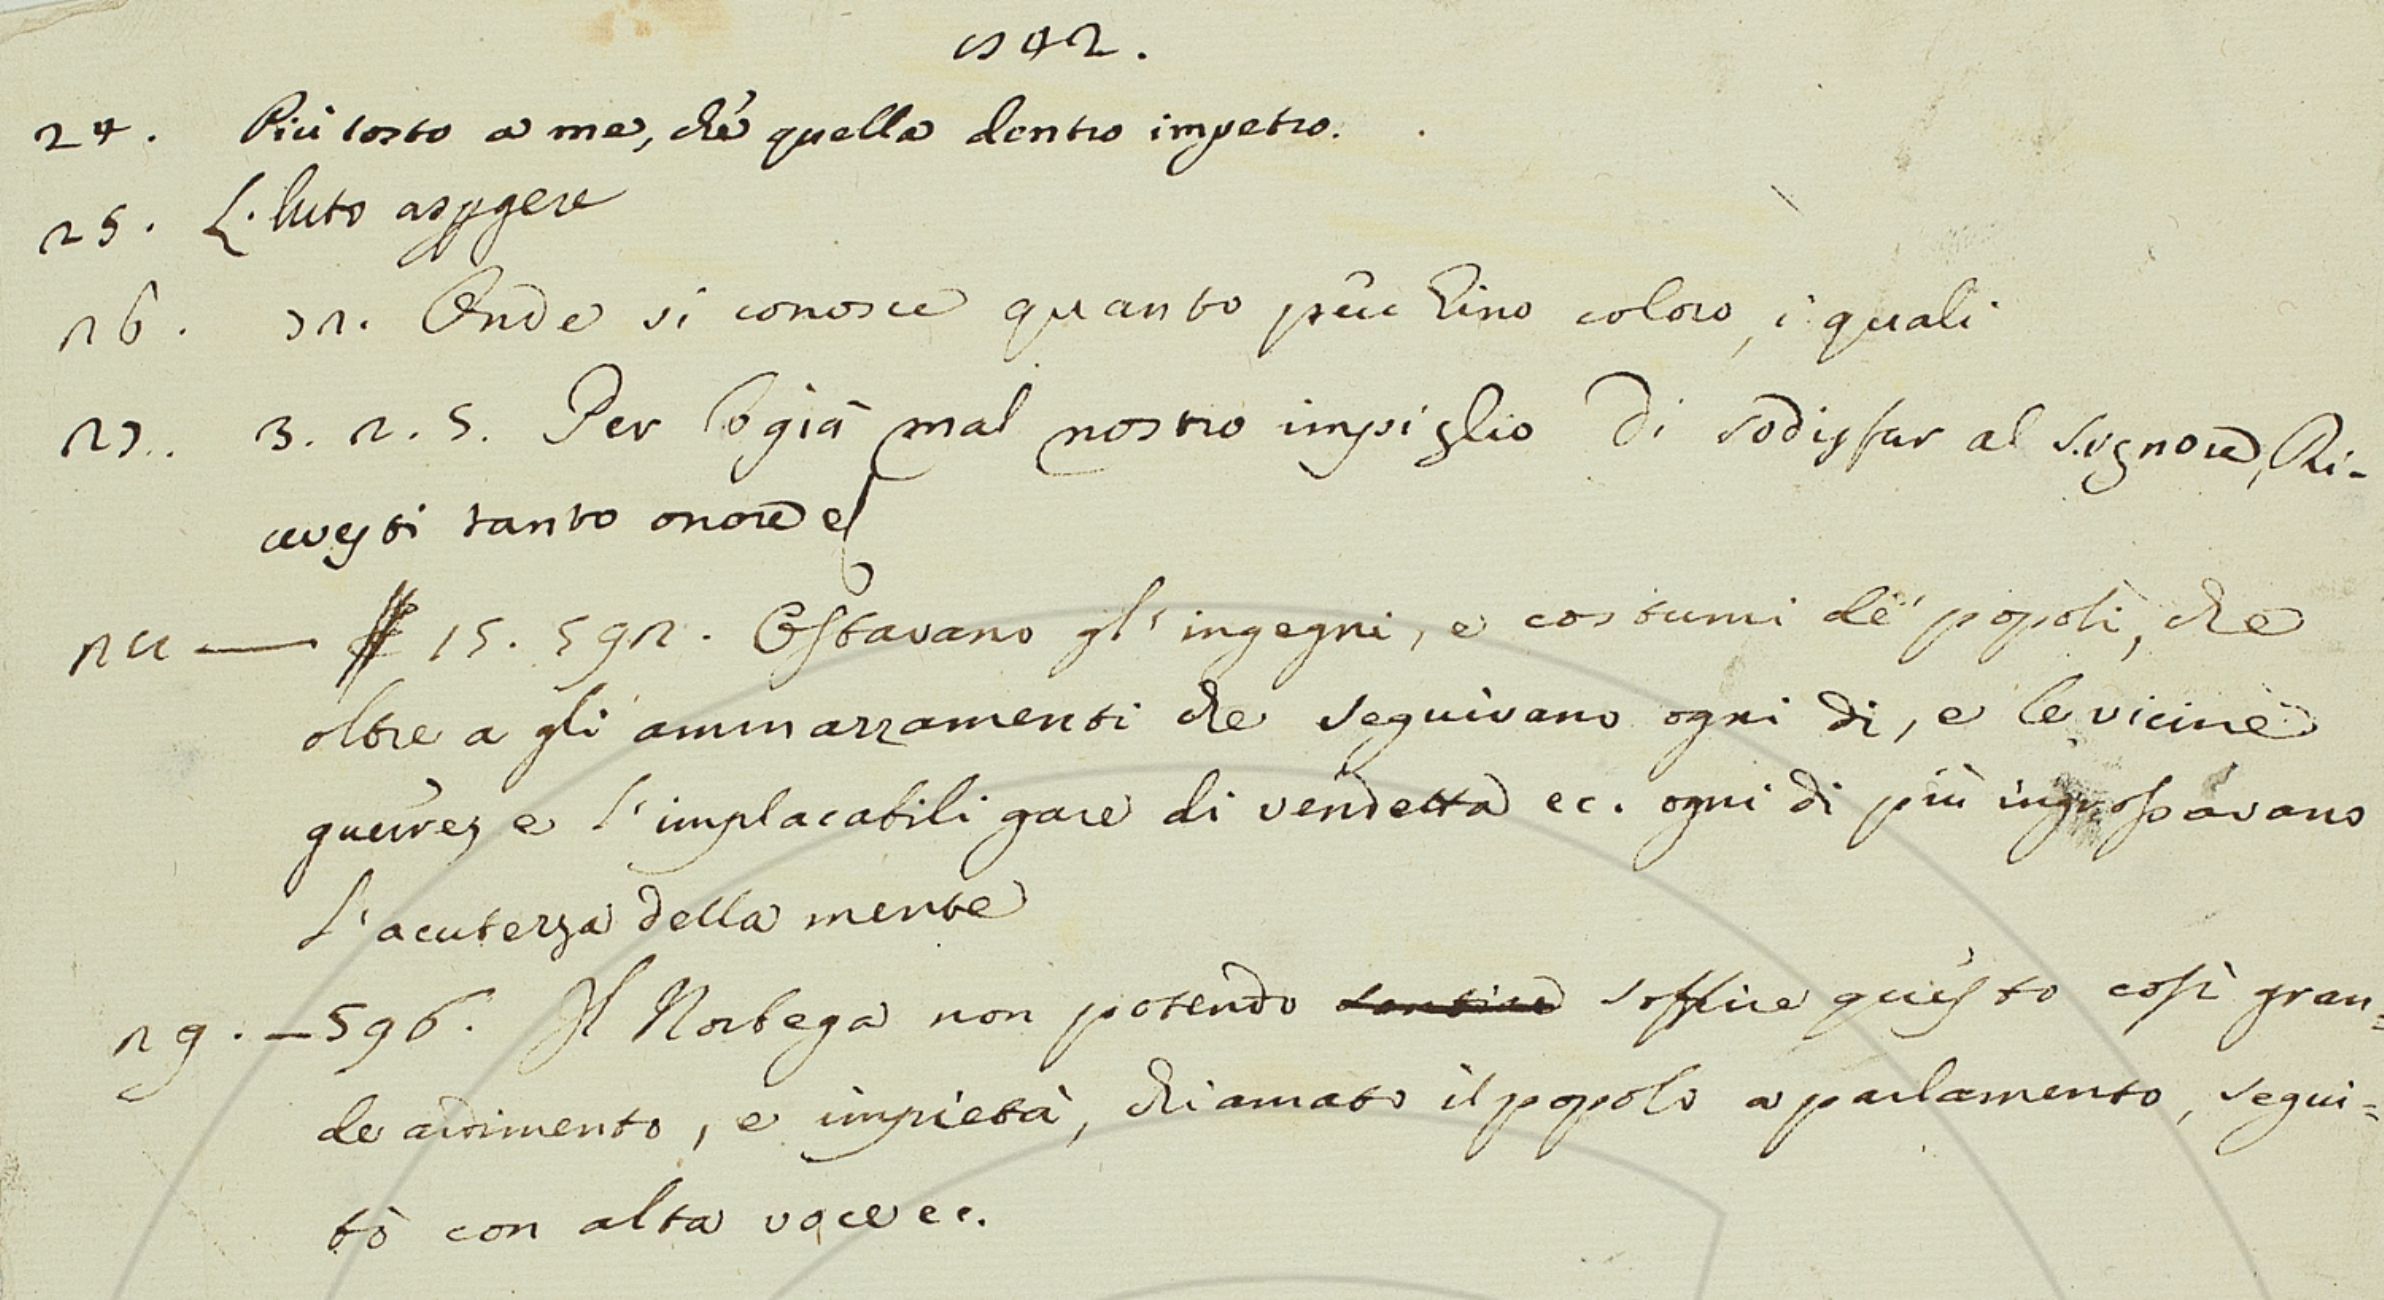 242.
24. Più tosto a me, ché quella dentro impetro.
25. L. luto aspgere
26. 72. Onde si conosce quanto coloro, i quali
27. 3. 2. 5. Per mal nostro impiglio di sodisfar al Signore, Ri-
cevesti tanto onore
28 — 15. 592. Ostavano gl' ingegni, e costumi de' popoli, che
oltre a gli ammazzamenti che seguivano ogni di, e le vicine
guerre, e l'implacabili gare di vendetta ec. ogni di più ingrossavano
l'acutezza della mente
29. — 596. Il Norbega non potendo soffrire questo così gran=
de ardimento, e impietà, chiamato il popolo a parlamento, segui=
tò con alta voce ec.